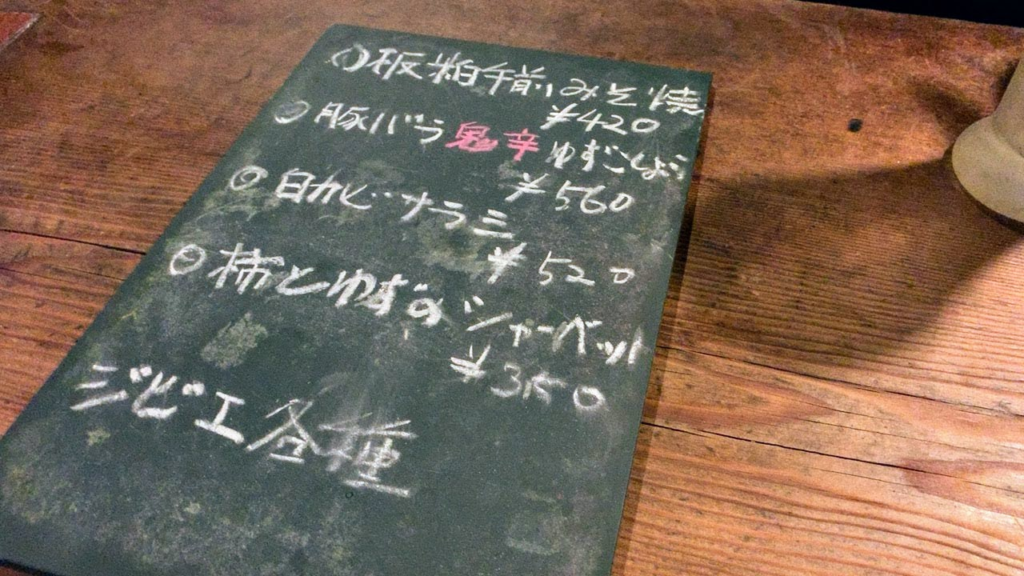 ◎板粕手前みそ焼
¥420
◎豚バラ鬼辛ゆずこしょう
¥560
◎白カビサラミ
¥520
◎柿とゆずのシャーベット
¥350
ジビエ各種